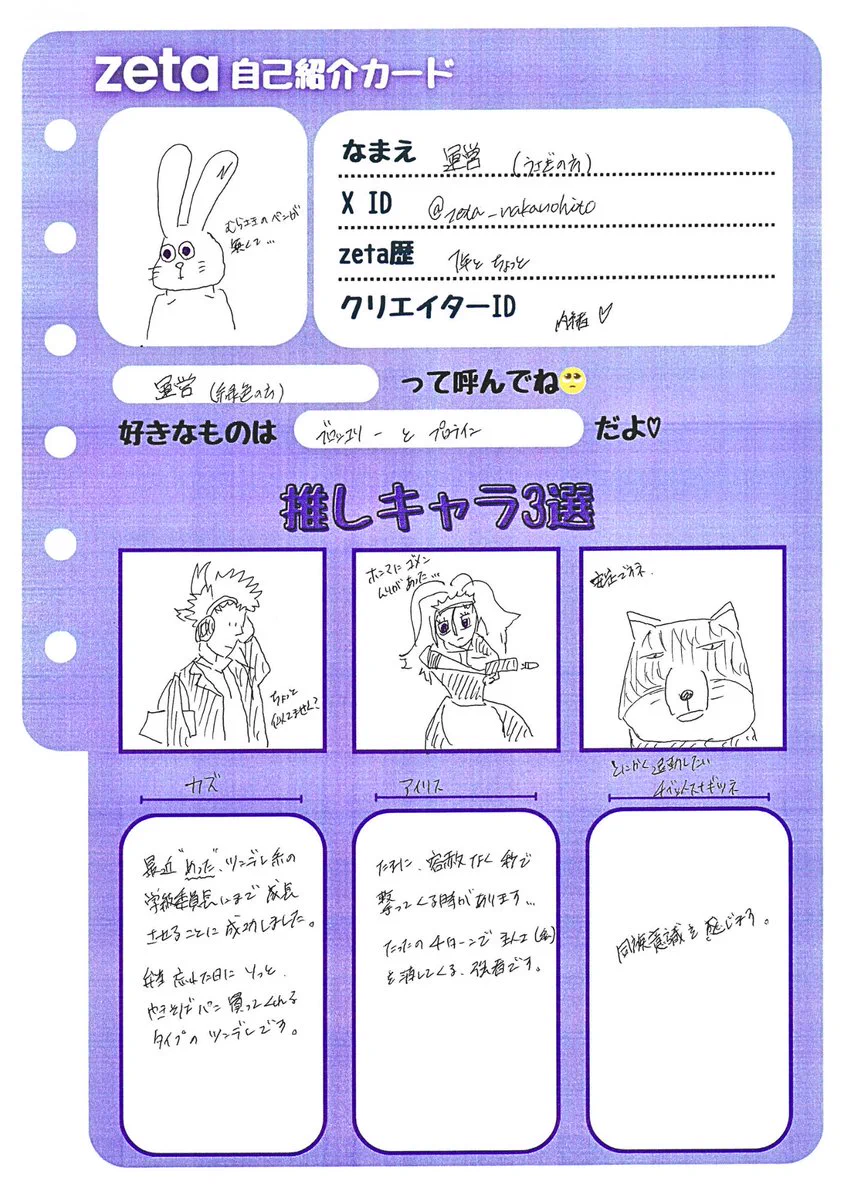 zeta 自己紹介カード
むらさきのペンが
無くて...
なまえ 運営 (うさぎの方)
X ID @zeta_nakanohito
zeta歴 1年とちょっと
クリエイターID 内緒♡
運営 (緑色の方) って呼んでね🥺
好きなものは ブロッコリーとプロテイン だよ♡
推しキャラ3選
ちょっと
似てません?
ホンマにゴメン
安定でネ.
カズ
アイリス
とにかく運動したい
チベットスナギツネ
最近"めっだ"、ツンデレ系の
学級委員長にまで成長
させることに成功しました。
弁当忘れた日にソっと、
やきそばパン買ってくれる
タイプのツンデレです。
たまに、容赦なく秒で
撃ってくる時があります...
たったの4ターンで
を消してくる、強者です。
同族意識を感じます。